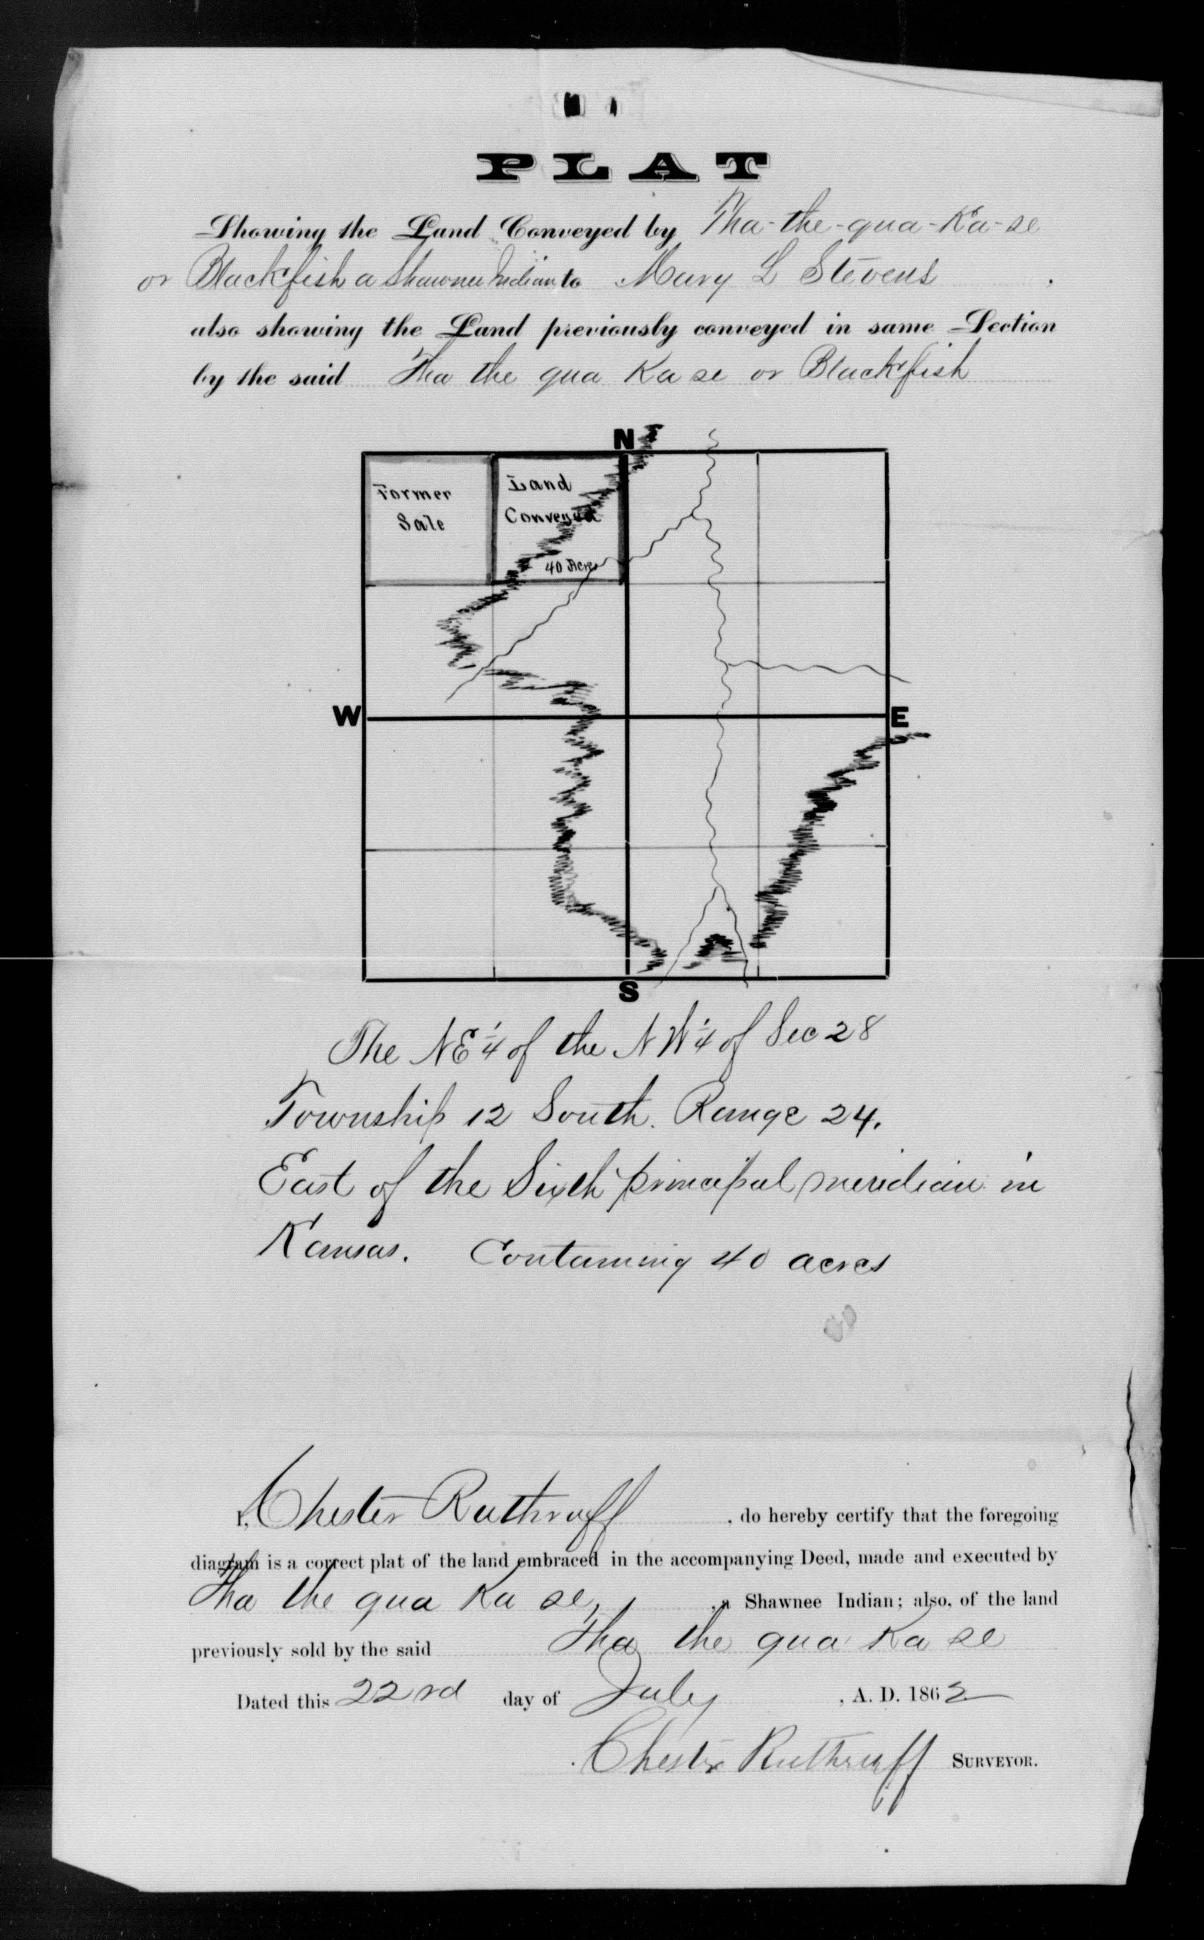 PLAT
Showing the Land Conveyed by Tha-the-qua-Ka-se
or Blackfish a Shawnee Indian to Mary L Stevens
also showing the Land previously conveyed in same Section
by the said Tha the qua Ka se or Blackfish
N
Former
Sale
Land
Conveyed
40 Acres
W
E
S
The NE 1/4 of the NW 1/4 of Sec 28
Township 12 South. Range 24.
East of the Sixth principal meridian in
Kansas. Containing 40 acres
40
I, Chester Ruthruff, do hereby certify that the foregoing
diagram is a correct plat of the land embraced in the accompanying Deed, made and executed by
Tha the qua Ka se, , a Shawnee Indian; also, of the land
previously sold by the said Tha the qua Ka se
Dated this 22nd day of July, A. D. 1862
Chester Ruthruff SURVEYOR.